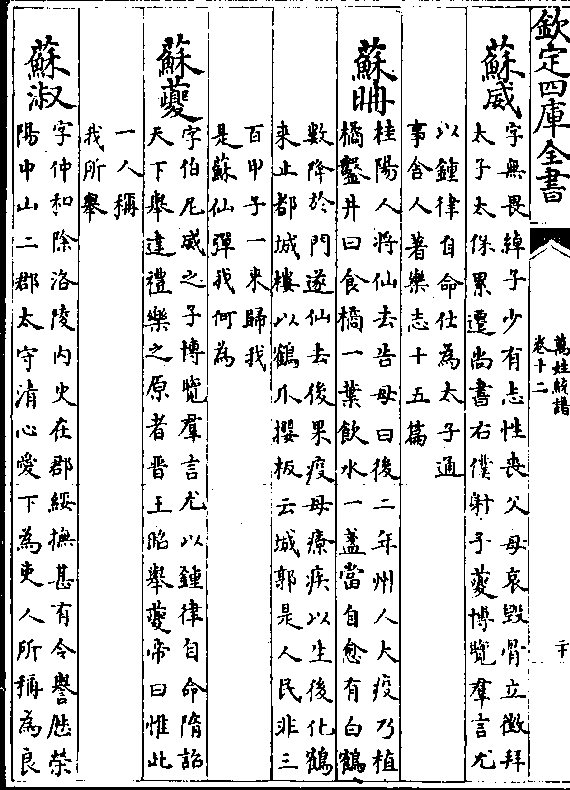 欽定四庫全書
萬姓統譜
卷十二
二十
蘇威
字無畏綽子少有志性喪父母哀毀骨立徵拜
太子太保累遷尚書右僕射子夔博覽羣言尤
以鍾律自命仕為太子通
事舍人著樂志十五篇
蘇𦕈
桂陽人將仙去告母曰後二年州人大疫乃植
橘鑿井曰食橘一葉飲水一盞當自愈有白鶴
數降於門遂仙去後果疫母療疾以生後化鶴
来止都城樓以鶴爪攫板云城郭是人民非三
百甲子一来歸我
是蘇仙彈我何為
蘇夔
字伯尼威之子博覽羣言尤以鍾律自命隋詔
天下舉達禮樂之原者晋王昭舉夔帝曰惟此
一人稱
我所舉
蘇淑
字仲和除洛陵内史在郡綏撫甚有令譽歴榮
陽中山二郡太守清心愛下為吏人所稱為良